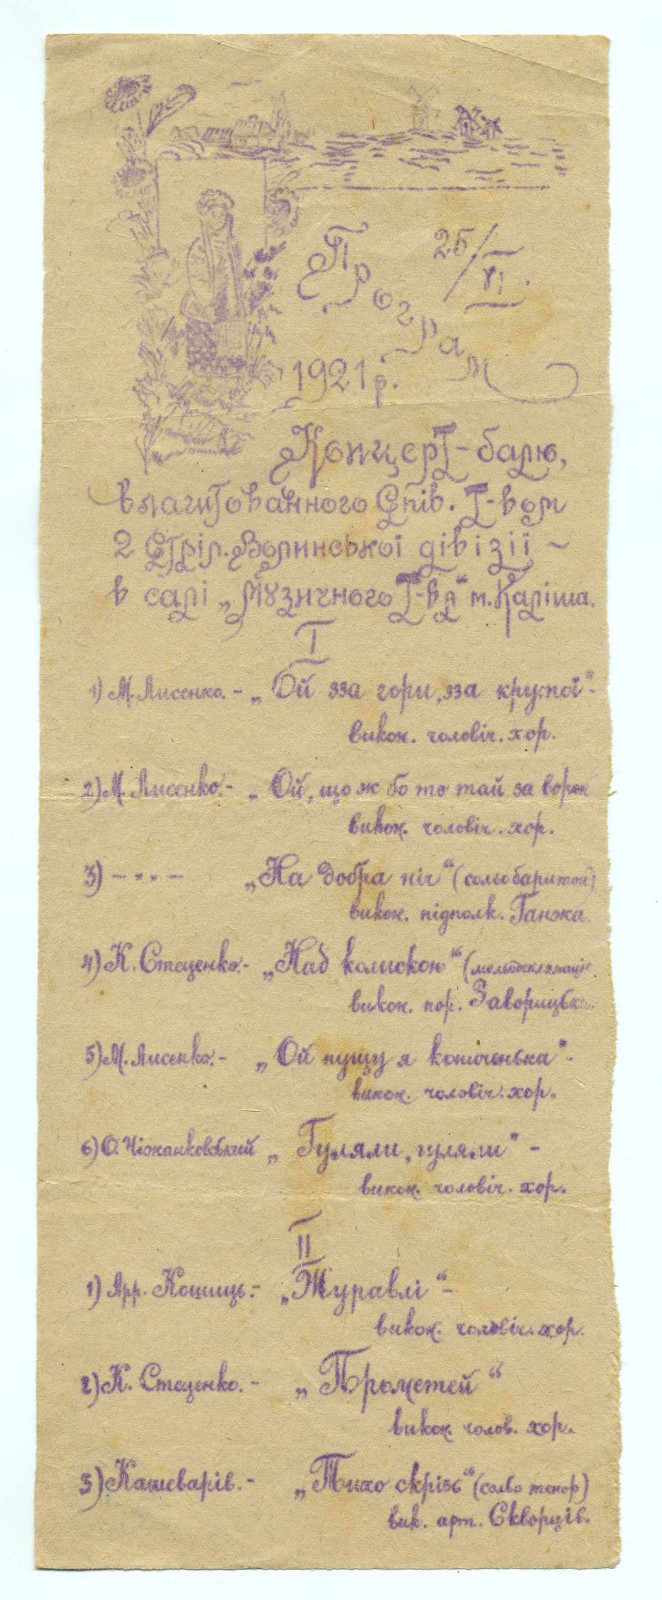 Програм 25/VI.
1921 р.
Концерт-балю,
влаштованного Спів. Т-вом
2 Стріл. Волинської дівізії –
в салі „Музичного Т-ва" м. Каліша.
I
1) М. Лисенко. – „Ой зза гори, зза крутої" –
викон. чоловіч. хор.
2) М. Лисенко. – „Ой, що ж бо то тай за ворон
викон. чоловіч. хор.
3) – „ – „На добра ніч" (сольо баритон)
викон. підполк. Ганжа.
4) К. Стеценко. – „Над колискою" (мельодеклямація
викон. пор.
5) М. Лисенко. – „Ой пущу я кониченька" –
викон. чоловіч. хор.
6) О. Ніжанковський „Гуляли, гуляли" –
викон. чоловіч. хор.
II
1) Арр. Кошиць. – „Журавлі" –
викон. чоловіч. хор.
2) К. Стеценко. – „Прометей"
викон. чолов. хор.
3) Кашеварів. – „Тихо скрізь" (сольо тенор)
вик. арт. Скворців.